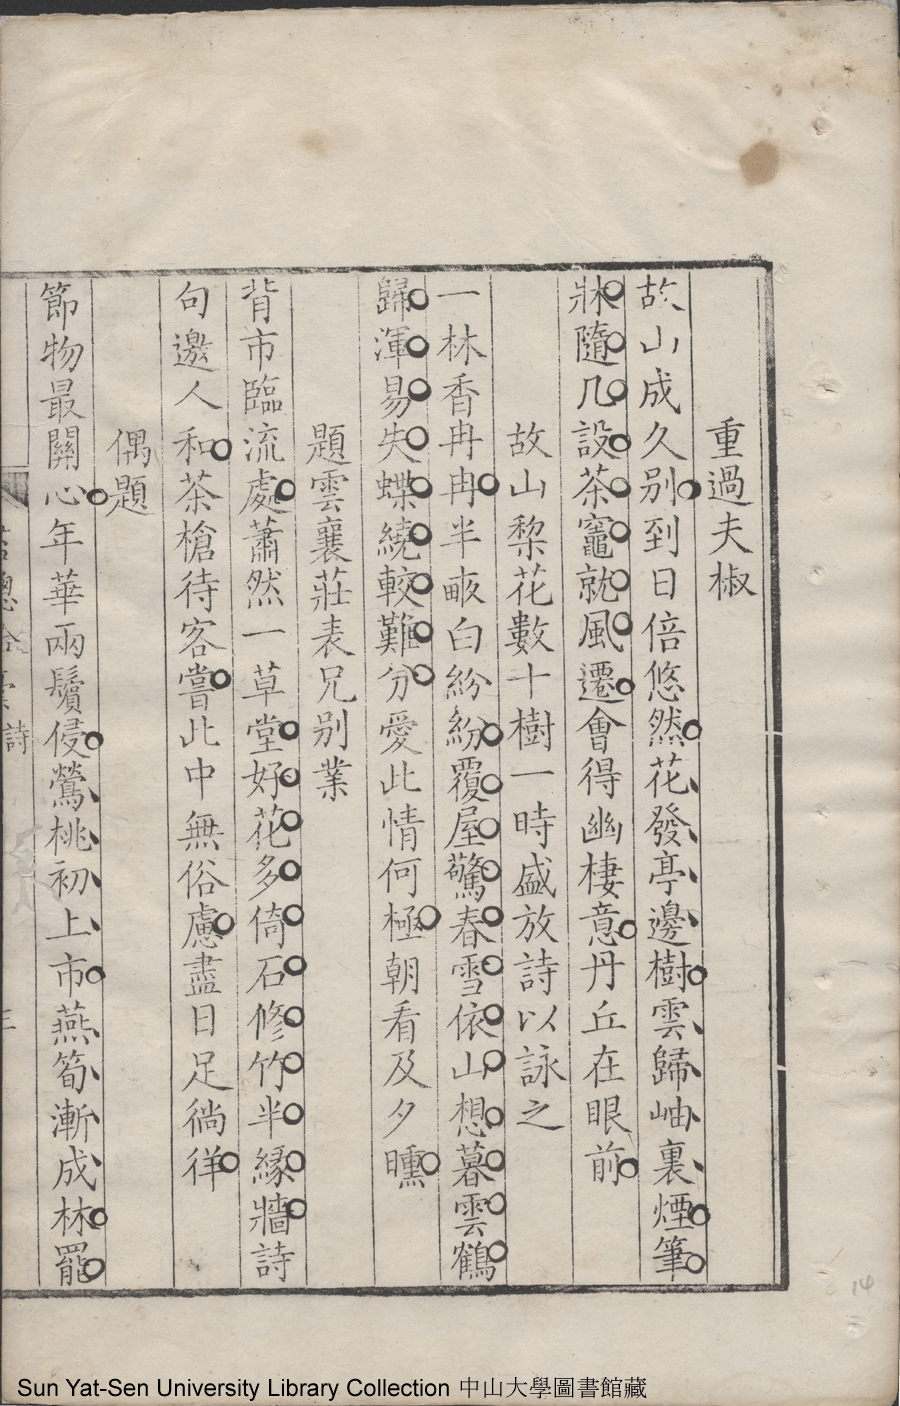 重過夫椒
故山成久别到日倍悠然花發亭邊樹雲歸岫裏煙筆
牀隨几設茶竈就風遷會得幽棲意丹丘在眼前
故山棃花數十樹一時盛放詩以詠之
一林香冉冉半畝白紛紛覆屋驚春雪依山想暮雲鶴
歸渾易失蝶繞較難分愛此情何極朝看及夕曛
題雲襄莊表兄别業
背市臨流處蕭然一草堂好花多倚石修竹半緣牆詩
句邀人和茶槍待客嘗此中無俗慮盡日足徜徉
偶題
節物最關心年華兩鬢侵鶯桃初上市燕筍漸成林罷
詩
14
Sun Yat-Sen University Library Collection 中山大學圖書館藏